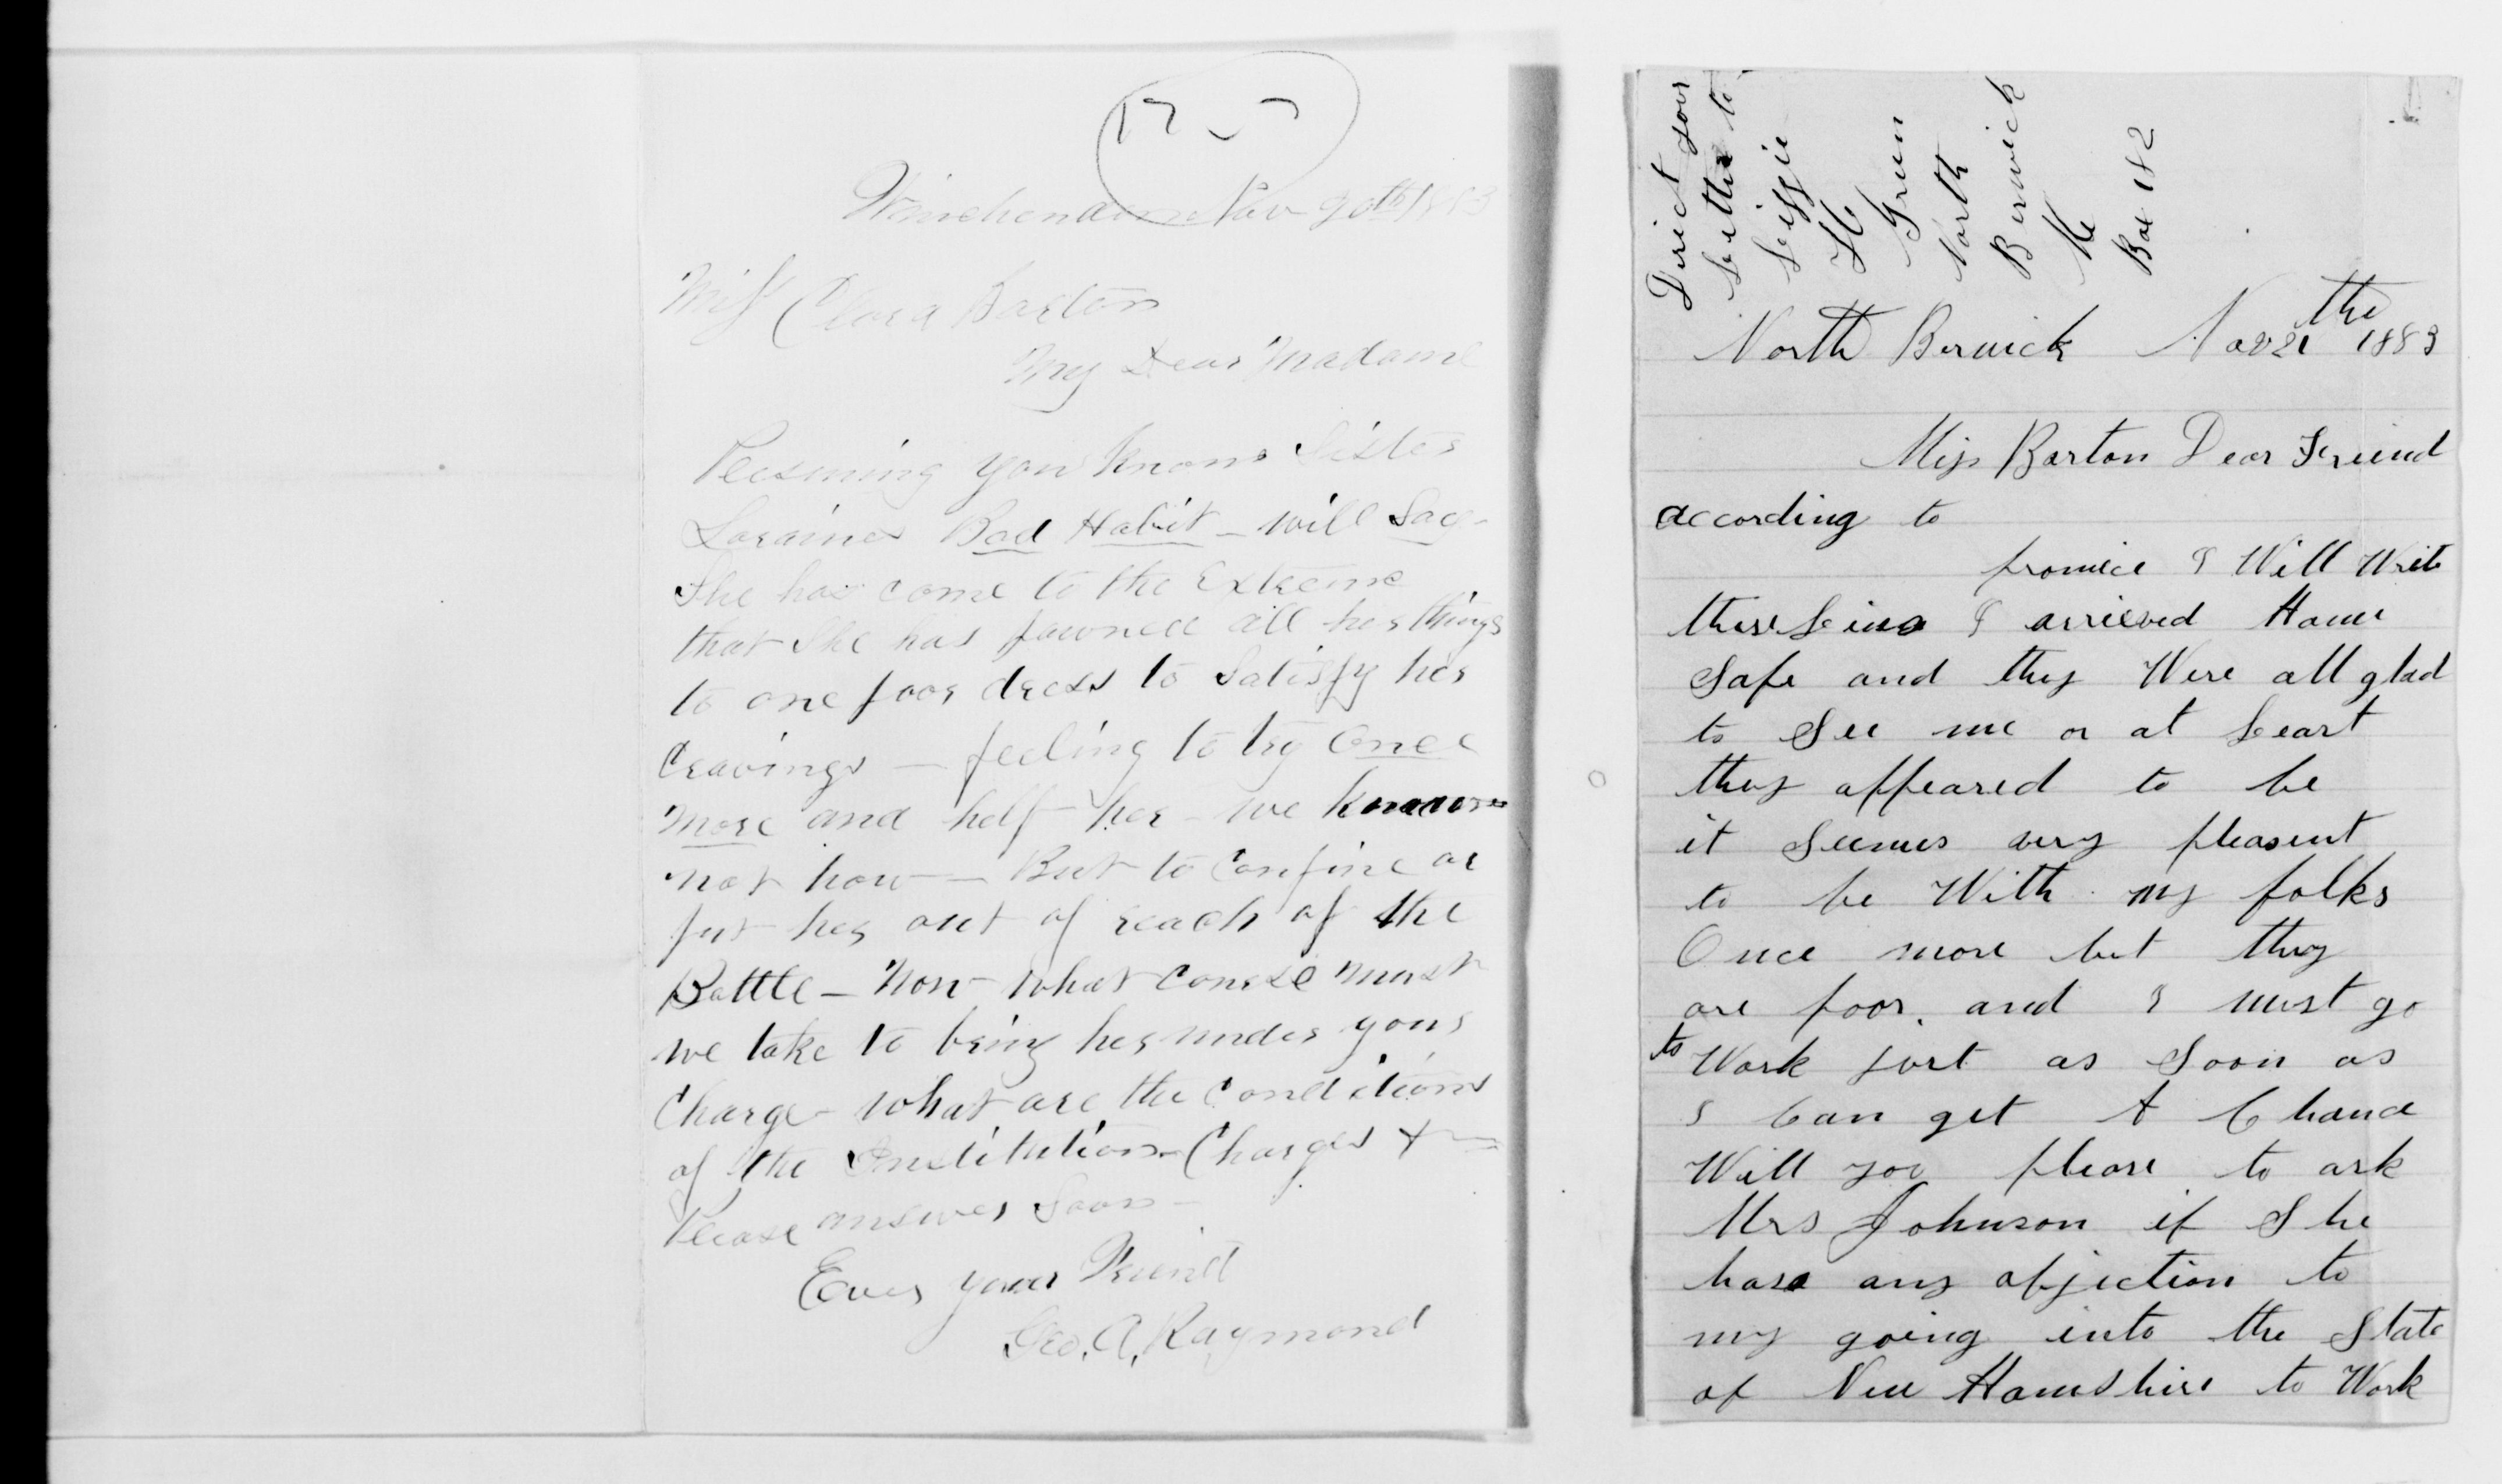 Winchendon Nov 20th 1883
Miss Clara Barton
My Dear Madame
Presuming you know Sister
Loraines Bad Habit - will Say -
She has come to the Extreme
that She has pawned all her things
to one poor dress to Satisfy her
Cravings - feeling to try Once
More and help her - we know
not how - But to Confine or
put her out of reach of the
Bottle - Now what course must
we take to bring her under your
Charge - what are the Conditions
of the Institution - Charges &
Please answer Soon -
Ever your Friend
Geo. A. Raymond
Direct your
Letter to
Lizzie
H
Green
North
Berwick
Me
Box 182
North Berwick Nov 21 the 1883
Miss Barton Dear Freiend
according to
promice I Will Write
these Lines I arrieved Home
Safe and they Were all glad
to See me or at Least
they appeared to be
it Seemes very pleasent
to be With my folks
Once more but they
are poor. and I must go
to Work just as Soon as
I Can get A Chance
Will you please to ask
Mrs Johnson if She
has any objection to
my going into the State
of New Hamshire to Work